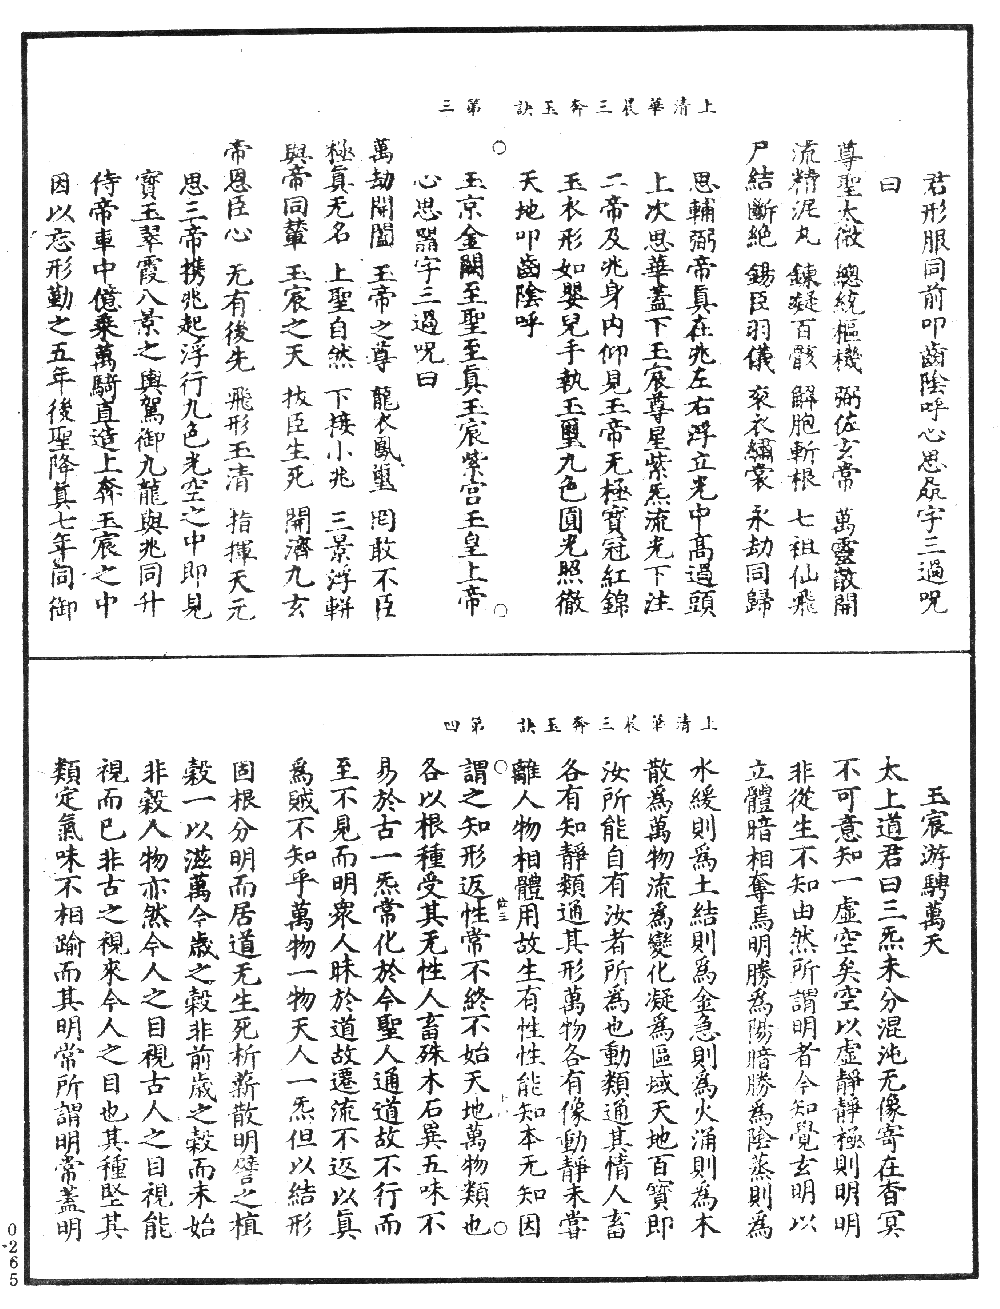 上清華晨三奔玉訣　第三
君形服同前叩齒陰呼心思字三過呪
曰
尊聖太微　總統樞機　弼佐玄帝　萬靈散開
流精泥丸　鍊凝百骸　解胞斬根　七祖仙飛
尸結斷絕　錫臣羽儀　衮衣繡裳　永劫同歸
思輔弼帝真在兆左右浮立光中高過頭
上次思華蓋下玉宸尊星紫炁流光下注
二帝及兆身内仰見玉帝无極寶冠紅錦
玉衣形如嬰兒手執玉璽九色圓光照徹
天地叩齒陰呼
玉京金闕至聖至真玉宸紫宫玉皇上帝
心思字三過呪曰
萬劫開闔　玉帝之尊　龍衣鳳璽　罔敢不臣
極真无名　上聖自然　下接小兆　三景浮軿
與帝同輦　玉宸之天　拔臣生死　開濟九玄
帝恩臣心　无有後先　飛形玉清　指揮天元
思三帝携兆起浮行九色光空之中即見
寶玉翠霞八景之輿駕御九龍與兆同升
侍帝車中億乘萬騎直造上奔玉宸之中
因以忘形勤之五年後聖降真七年同御
上清華晨三奔玉訣　第四
玉宸游騁萬天
太上道君曰三炁未分混沌无像寄在杳冥
不可意知一虛空矣空以虛靜靜極則明明
非從生不知由然所謂明者今知覺玄明以
立體暗相奪焉明勝為陽暗勝為陰蒸則為
水緩則為土結則為金急則為火涌則為木
散為萬物流為變化凝為區域天地百寶即
汝所能自有汝者所為也動類通其情人畜
各有知靜類通其形萬物各有像動靜未嘗
離人物相體用故生有性性能知本无知因
謂之知形返性常不終不始天地萬物類也
各以根種受其无性人畜殊木石異五味不
易於古一炁常化於今聖人通道故不行而
至不見而明衆人昧於道故遷流不返以真
為賊不知乎萬物一物天人一炁但以結形
固根分明而居道无生死析薪散明譬之植
穀一以滋萬今歲之穀非前歲之穀而未始
非穀人物亦然今人之目視古人之目視能
視而已非古之視來今人之目也其種堅其
類定氣味不相踰而其明常所謂明常蓋明
0265